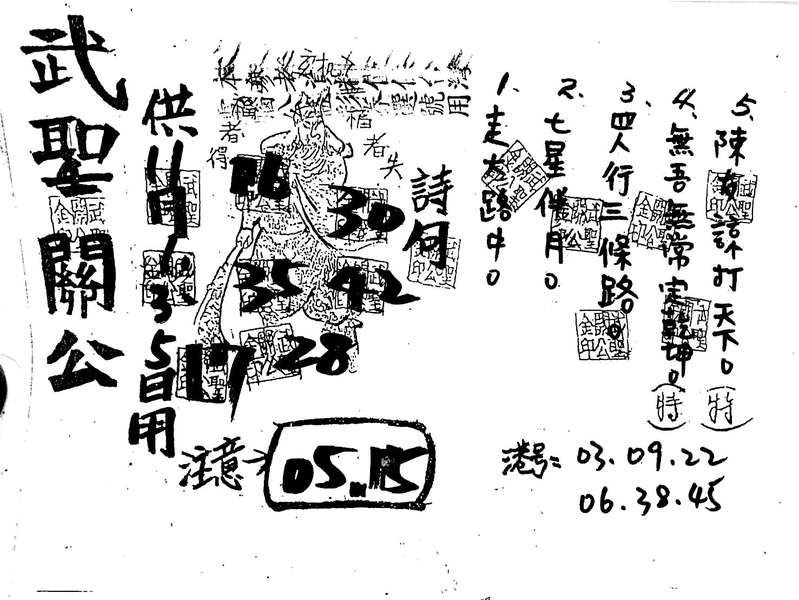 武聖關公
供11月1.3.5日用
者得
者失
16
30
35
42
17
28
詩句
1. 走大路中。
2. 七星伴月。
3. 四人行三條路。
4. 無吾無常定乾坤。(特)
5. 陳諒打天下。(特)
注意
05.15
港号: 03.09.22
06.38.45